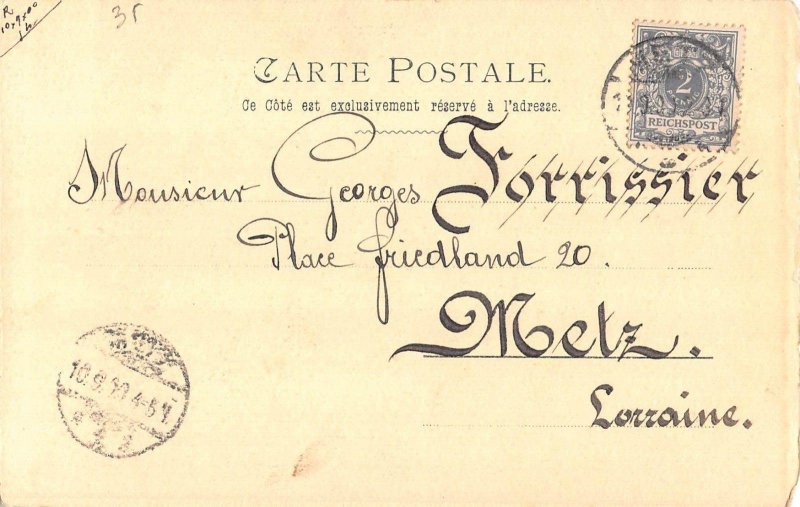 35
CARTE POSTALE.
Ce Côté est exclusivement réservé à l'adresse.
2
REICHSPOST
Monsieur Georges Forrissier
Place Friedland 20.
Metz.
Lorraine.